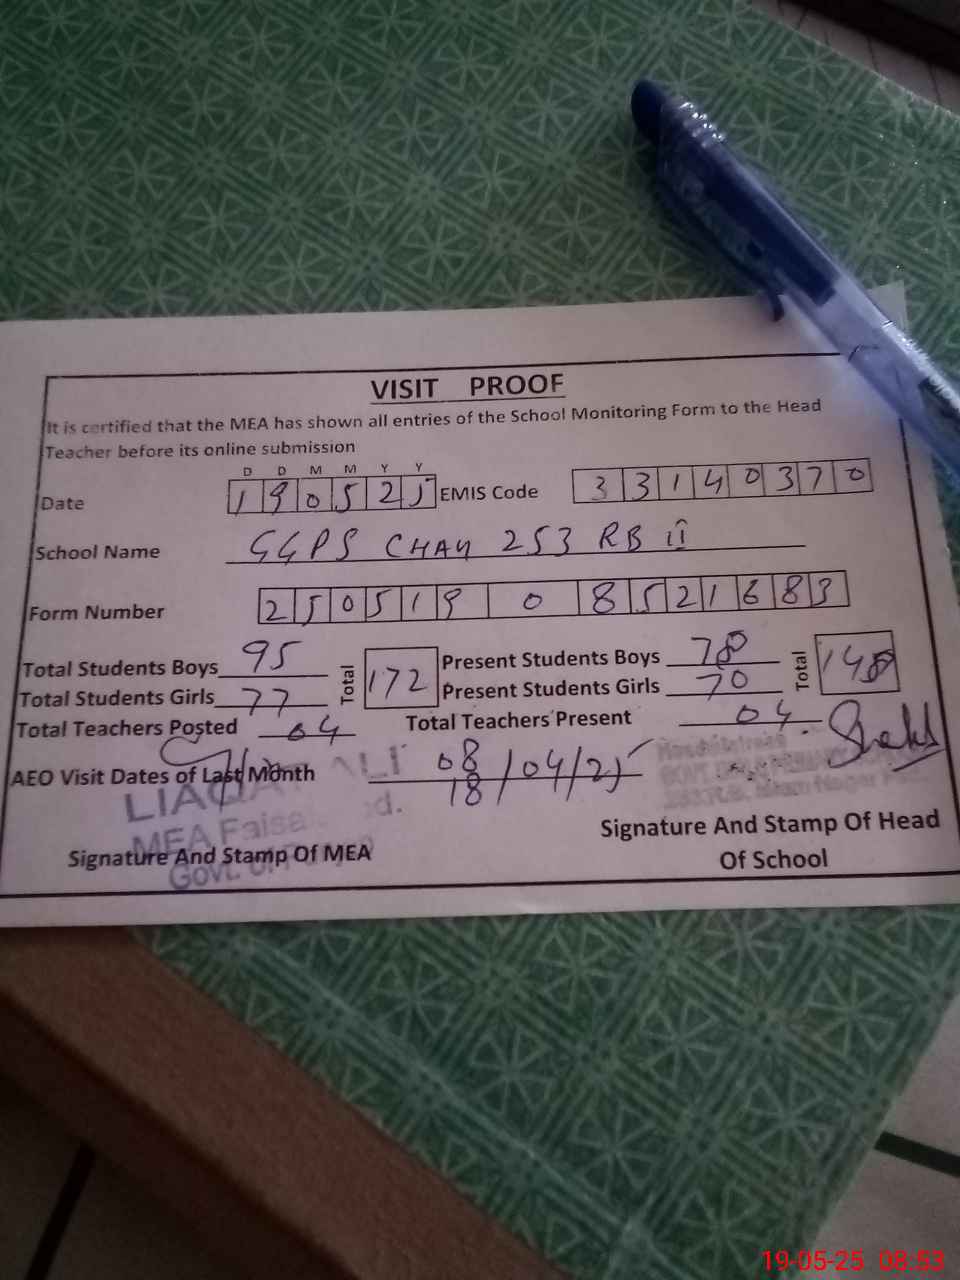 VISIT PROOF
It is certified that the MEA has shown all entries of the School Monitoring Form to the Head
Teacher before its online submission
D D M M Y Y
Date 190525 EMIS Code 33140370
School Name GGPS CHAK 253 RB II
Form Number 25051908521683
Total Students Boys 95 Total 172 Present Students Boys 78 Total 148
Total Students Girls 77 Present Students Girls 70
Total Teachers Posted 04 Total Teachers Present 04
AEO Visit Dates of Last Month 08/04/25
18
LIAQAT ALI
MEA Faisa d.
Govt. Of
Signature And Stamp Of MEA
Signature And Stamp Of Head
Of School
19-05-25 08:53